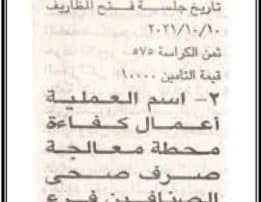 تاريخ جلسة فتح المظاريف
٢٠٢١/١٠/١٠
ثمن الكراسة ٥٧٥
قيمة التامين ١٠٠٠٠
٢- اسم العملية
أعمال كفاءة
محطة معالجة
صرف صحى
الصنافين فرع